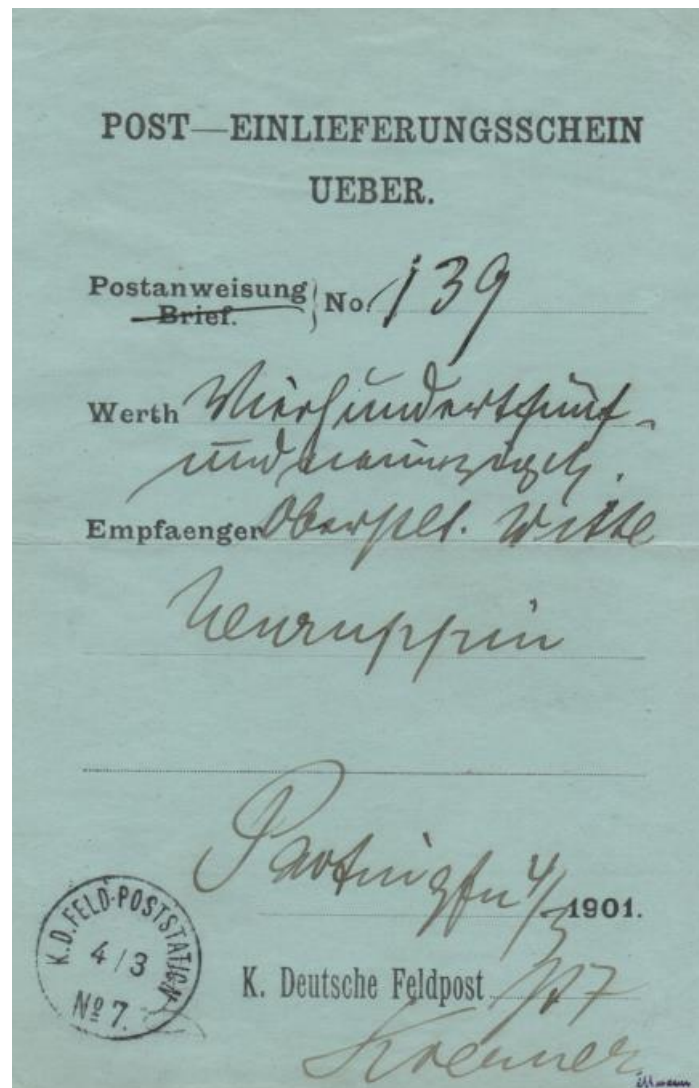 POST—EINLIEFERUNGSSCHEIN
UEBER.
Postanweisung
Brief.
No. 139
Werth Vierhundertfünf-
und neunzig
Empfaenger Oberstlt. Witte
Neuruppin
Paotingfu 4/3 1901.
K. D. FELD-POSTSTATION
4/3
No 7.
K. Deutsche Feldpost No 7
Koerner